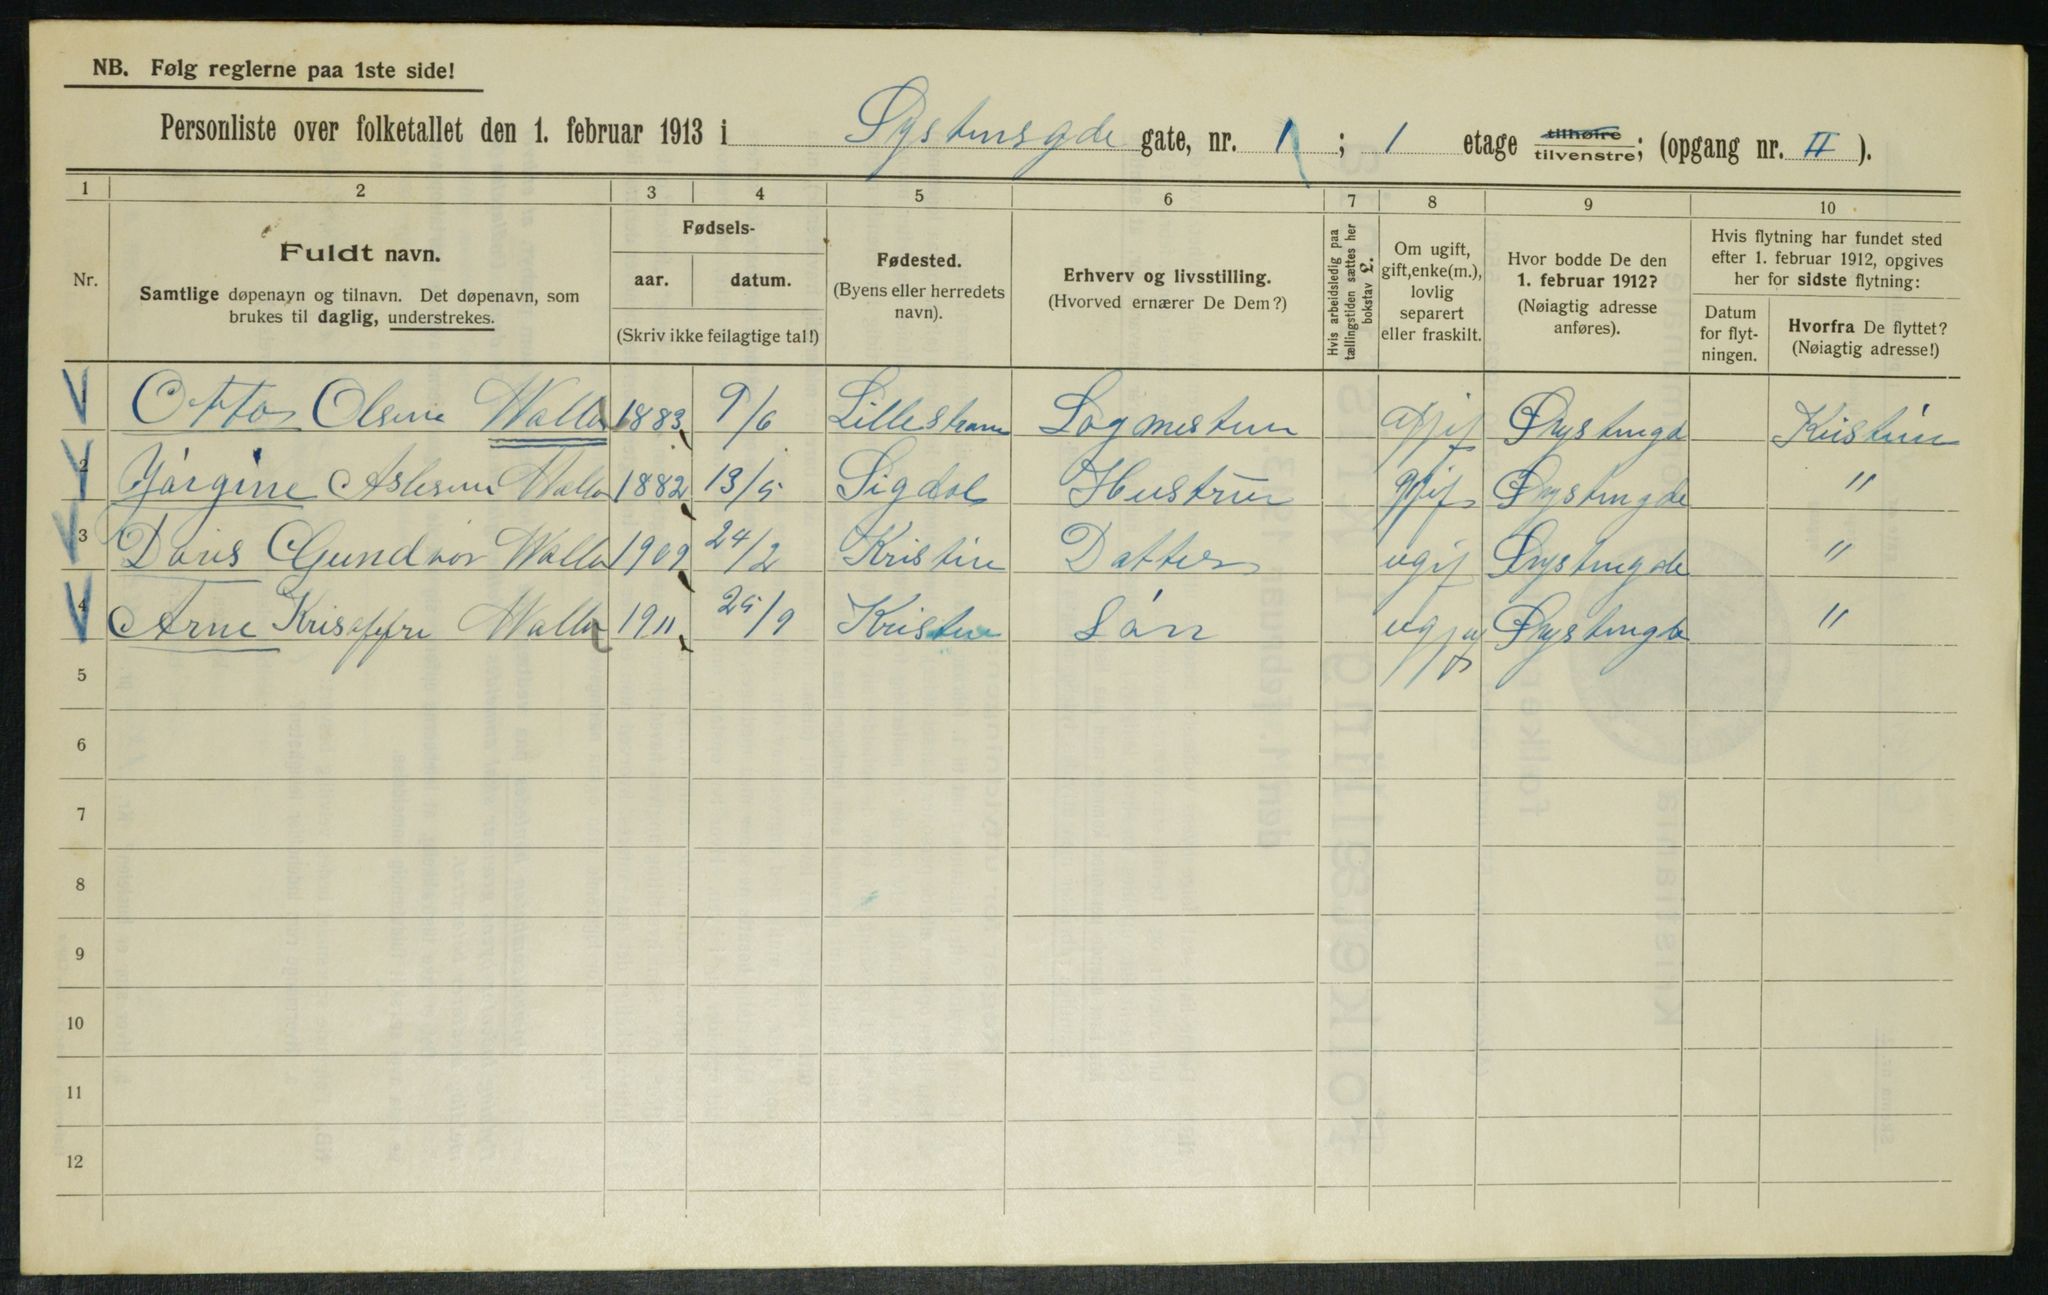 NB. Følg reglerne paa 1ste side!
Personliste over folketallet den 1. februar 1913 i Systensgde gate, nr. 1; 1 etage tilhøire tilvenstre; (opgang nr. II).
1 2 3 4 5 6 7 8 9 10
Nr.
Fuldt navn.
Samtlige døpenavn og tilnavn. Det døpenavn, som
brukes til daglig, understrekes.
Fødsels-
aar. datum.
(Skriv ikke feilagtige tal!)
Fødested.
(Byens eller herredets
navn).
Erhverv og livsstilling.
(Hvorved ernærer De Dem?)
Hvis arbeidsledig paa
tællingstiden sættes her
bokstav £.
Om ugift,
gift, enke(m.),
lovlig
separert
eller fraskilt.
Hvor bodde De den
1. februar 1912?
(Nøiagtig adresse
anføres).
Hvis flytning har fundet sted
efter 1. februar 1912, opgives
her for sidste flytning:
Datum
for flyt-
ningen.
Hvorfra De flyttet?
(Nøiagtig adresse!)
Otto Olsen Walla 1883 9/6 Lillestrøm gift Kristin
2 Jørgine Aslesen Walla 1882 13/5 Sigdal Hustru gift "
3 Doris Gundvor Walla 1909 24/2 Kristin Datter ugif "
4 Arne Walla 1911 25/9 Kristin Søn "
5
6
7
8
9
10
11
12